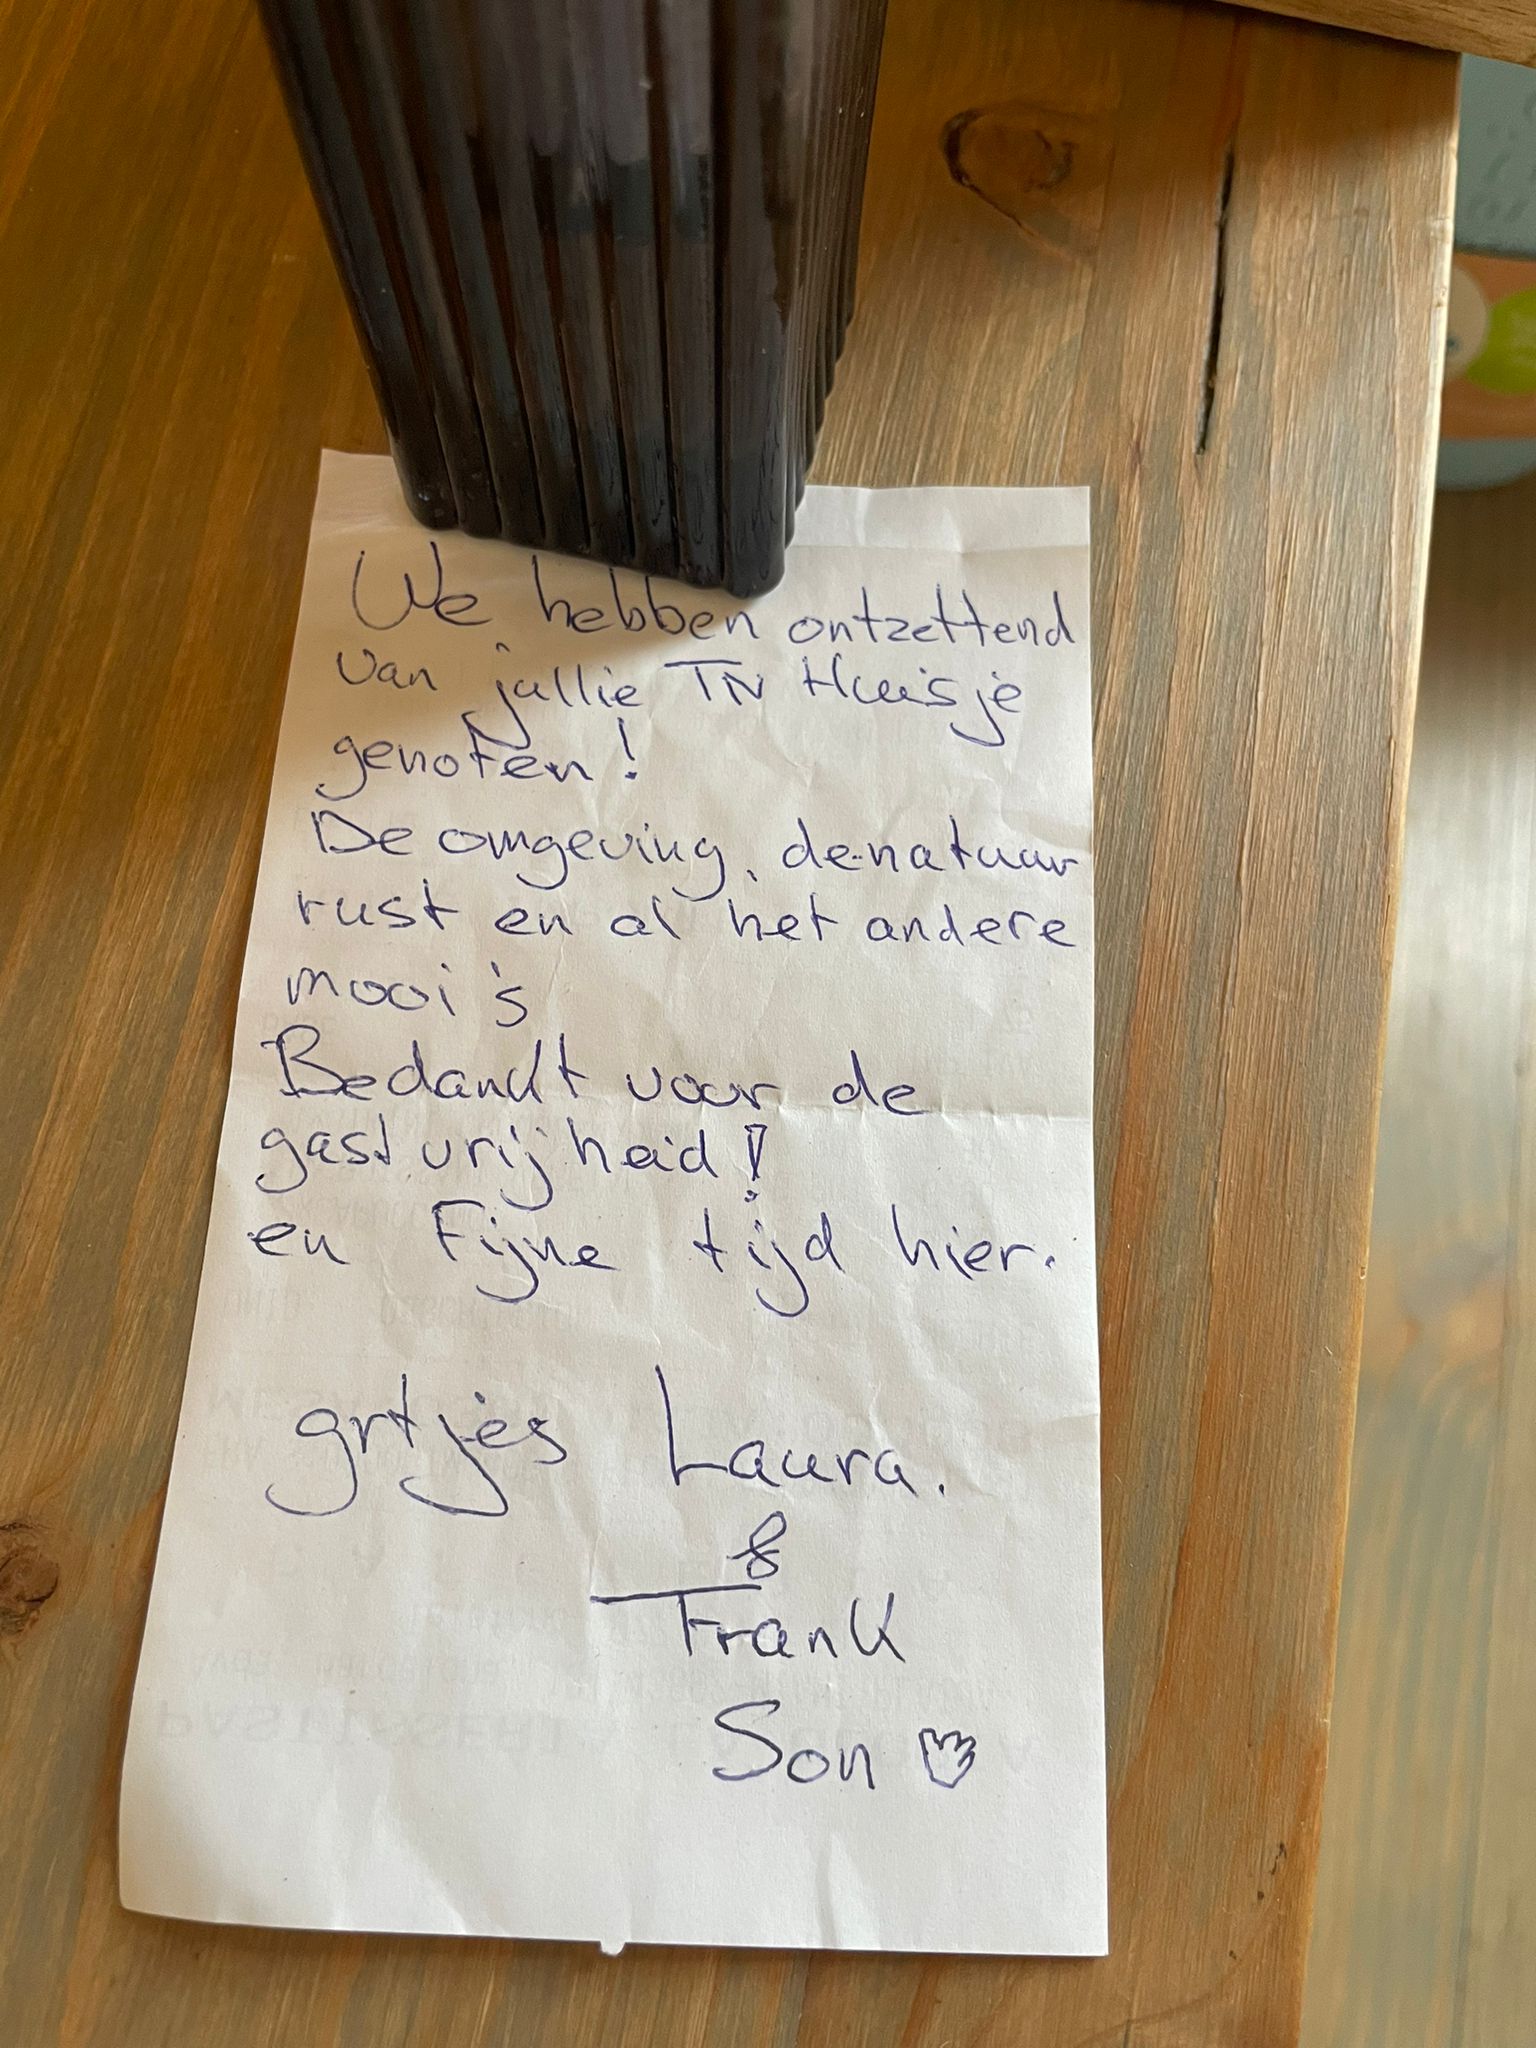 We hebben ontzettend
van jullie TN Huisje
genoten!
De omgeving, de natuur
rust en al het andere
mooi's
Bedankt voor de
gastvrijheid!
en Fijne tijd hier.
grtjes Laura.
&
Frank
Son